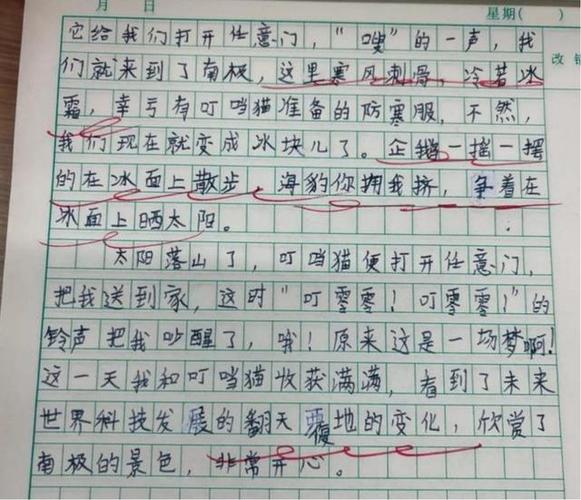 月 日 星期( )
它给我们打开任意门，“嗖”的一声，我
们就来到了南极，这里寒风刺骨，冷若冰
霜，幸亏有叮当猫准备的防寒服，不然，
我们现在就变成冰块儿了。企鹅一摇一摆
的在冰面上散步，海豹你拥我挤，争着在
冰面上晒太阳。
太阳落山了，叮当猫便打开任意门，
把我送到家，这时“叮零零！叮零零！”的
铃声把我吵醒了，哦！原来这是一场梦啊!
这一天我和叮当猫收获满满，看到了未来
世界科技发展的翻天覆地的变化，欣赏了
南极的景色，非常开心。